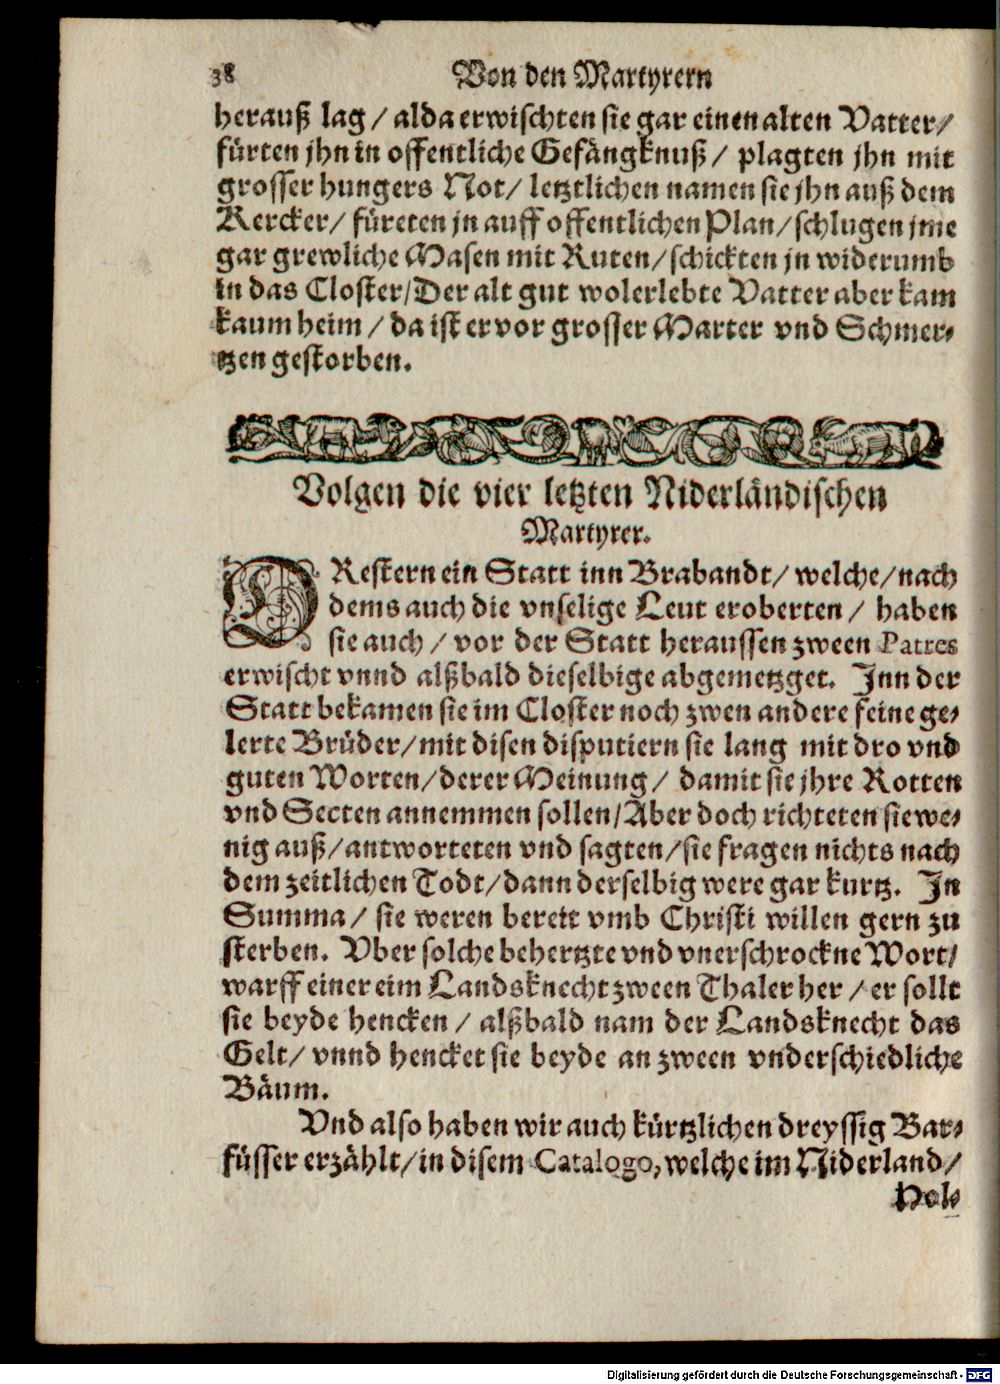 38 Von den Martyrern
herauß lag / alda erwischten sie gar einen alten Vatter/
fürten jhn in offentliche Gefängknuß / plagten jhn mit
grosser hungers Not / letztlichen namen sie jhn auß dem
Kercker / füreten jn auff offentlichen Plan / schlugen jme
gar grewliche Masen mit Ruten / schickten jn widerumb
in das Closter / Der alt gut wolerlebte Vatter aber kam
kaum heim / da ist er vor grosser Marter vnd Schmer-
tzen gestorben.
Volgen die vier letzten Niderländischen
Martyrer.
DRestern ein Statt inn Brabandt / welche / nach
dems auch die vnselige Leut eroberten / haben
sie auch / vor der Statt heraussen zween Patres
erwischt vnnd alßbald dieselbige abgemetzget. Jnn der
Statt bekamen sie im Closter noch zwen andere feine ge-
lerte Brüder / mit disen disputiern sie lang mit dro vnd
guten Worten / derer Meinung / damit sie jhre Rotten
vnd Secten annemmen sollen / Aber doch richteten sie we-
nig auß / antworteten vnd sagten / sie fragen nichts nach
dem zeitlichen Todt / dann derselbig were gar kurtz. Jn
Summa / sie weren bereit vmb Christi willen gern zu
sterben. Vber solche behertzte vnd vnerschrockne Wort /
warff einer eim Landsknecht zween Thaler her / er sollt
sie beyde hencken / alßbald nam der Landsknecht das
Gelt / vnnd hencket sie beyde an zween vnderschiedliche
Bäum.
Vnd also haben wir auch kürtzlichen dreyssig Bar-
füsser erzählt / in disem Catalogo, welche im Niderland /
Hol-
Digitalisierung gefördert durch die Deutsche Forschungsgemeinschaft - DFG